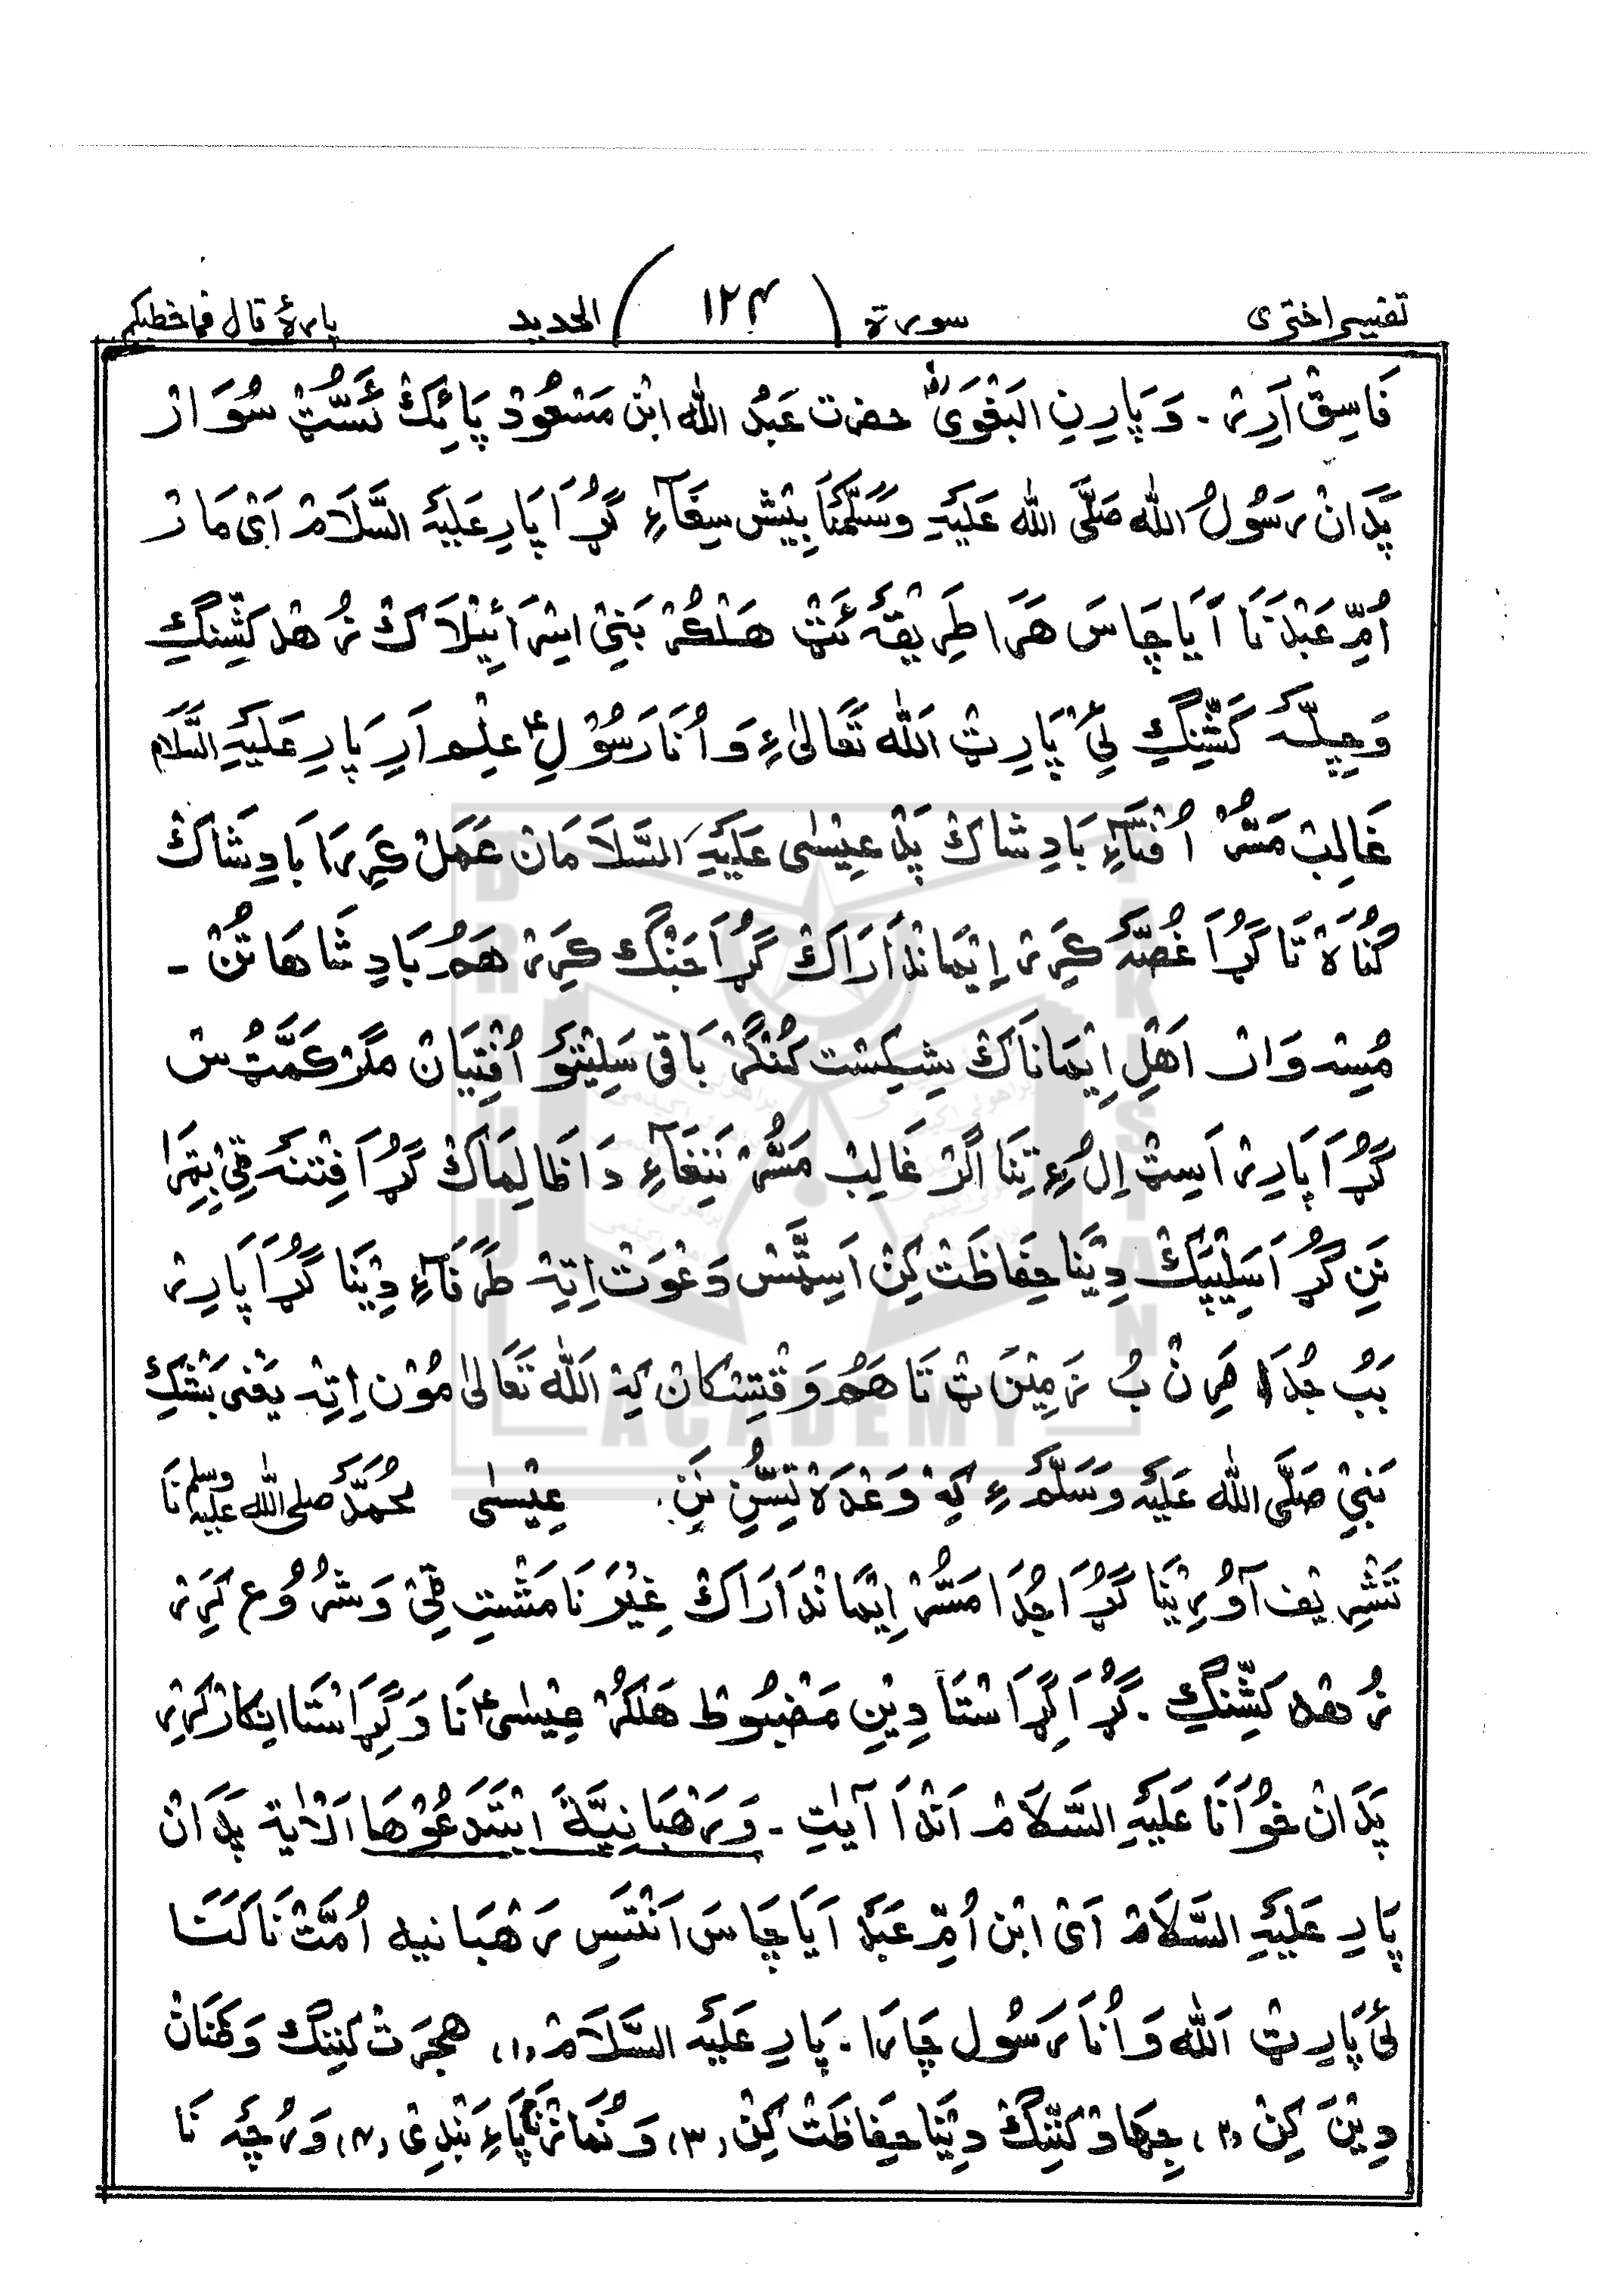 تفسیر اختری سورة (۱۲۴) الحدید پارۂ قال فماخطبکم
فَاسِقْ اَرِیْر۔ وَپَارِنِ الْبَغْوَیْ حضرت عَبْد اللّٰہ ابْن مَسْعُوْد پَائِکْ ئَسُّٹْ سُوَارْ
پَدَانْ رَسُوْلُ اللّٰہ صَلَّی اللّٰہ عَلَیْہِ وَسَلَّمْنَا بِیْش سِغَآءِ گُڑَا پَارِ عَلَیْہِ السَّلَامْ اَیْ مَارْ
اُمِّ عَبْدْ نَا آیَا چَاسَ ھَرَا طَرِیْقَہ ئَٹْ ھَلْکُرْ بَنِیْ اِسْرَائِیْلَاکْ زُھْد کَشِّنْگِ
وَچِلّہ کَشِّنْگِ لَیْ پَارِیٹْ اَللّٰہ تَعَالیٰ ءِ وَاُنَا رَسُوْلِ عِلْم اَرِ پَارِ عَلَیْہِ السَّلَام
غَالِبْ مَسُّرْ اُفْتَآءِ بَادِشَاکْ پَدْ عِیْسٰی عَلَیْہِ السَّلَامَانْ عَمَلْ کَرِیرَہ بَادِشَاکْ
گُنَاہْ تَا گُڑَا غُصَّہ کَرِیْر اِیْمَانْدَارَاکْ گُڑَا جَنْگ کَرِیْر ھَمُ بَادِشَاھَاتُنْ ۔
مُسِہ وَارْ اَھْلِ اِیْمَانَاکْ شِکِسْت کُنْگُرْ بَاقِی سَلِیْتَوُ اُفْتِیَانْ مَگَرْ کَمَّٹُسْ
گُڑَا پَارِیْر اَسِٹْ اِلُءِتِنَا اَگَرْ غَالِبْ مَسُّرْ نَنِغَاءِ دَا ظَالِمَاکْ گُڑَا فِتْنَہ ٹِیْ بِتِرَا
نَنِ گُڑَا سَلِیْپَکْ دِیْنَا حِفَاظَتْ کِنْ اَسِٹَسْ دَعْوَتْ اِتِہ طَرَفَآءِ دِیْنَا گُڑَا پَارِیْر
بَبُ جُدَا ضِرِنْ بُ زَمِیْنَ ٹْ تَا ھَمُ وَقْتِسْکَانْ کِہ اَللّٰہ تَعَالیٰ مُوْن اِتِہ یَعْنِی بَشْکِ
نَبِیِّ صَلَّی اللّٰہ عَلَیْہ وَسَلَّمَ ءِ کِہ وَعْدَہْ تِسُّنِ نَنِ۔ عِیْسٰی مُحَمَّدْ صلی اللّٰہ علیہ وسلم نَا
تَشْرِیْف آوُرِیْنَا گُڑَا جُدَا مَسُّرْ اِیْمَانْدَارَاکْ غَیْرَ نَا مَشْتِ ٹِیْ وَشُرُوْع کَرِیْر
زُھْد کَشِّنْگِ ۔ گُڑَا گِڑَاسْتَا دِیْنِ مَضْبُوْط ھَلْکُرْ عِیْسٰی نَا وَگِڑَاسْتَا اِنْکَارْ کَرِیْر
پَدَانْ خُوَانَا عَلَیْہِ السَّلَامْ اَنْدَا آیَتِ ۔ وَرَھْبَانِیَّۃَ ابْتَدَعُوْھَا اَلْاٰیَۃ پَدَانْ
پَارِ عَلَیْہِ السَّلَامْ اَیْ ابْن اُمِّ عَبْد اَیَا چَاسَ اَنْتَسِ رَھْبَانیہ اُمَّتْ نَاکَنَا
لَیْ پَارِیٹْ اَللّٰہ وَاُنَا رَسُوْل چَارَا۔ پَارِ عَلَیْہ السَّلَامْ (۱) ھِجْرَتْ کَنِنْگ وَطَنَانْ
دِیْنَ کِنْ (۲) جِھَادْ کَنِّنْگ دِیْنَا حِفَاظَتْ کِنْ (۳) وَنُمَازْنَا پَاءِ بَنْدِیْ (۴) وَرُچَہ نَا